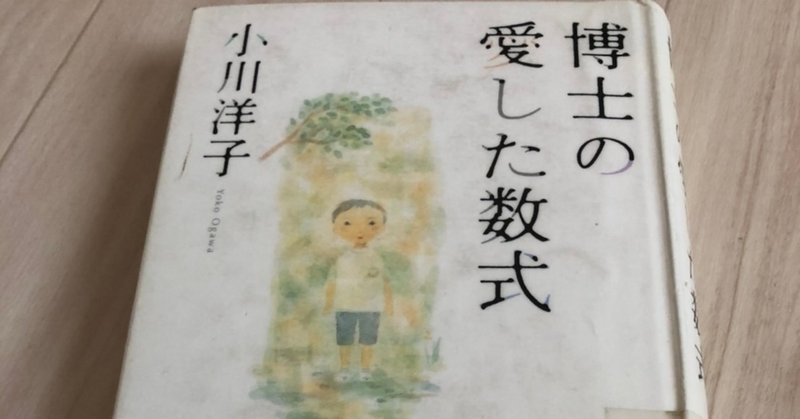 博士の
愛した数式
小川洋子
Yoko Ogawa